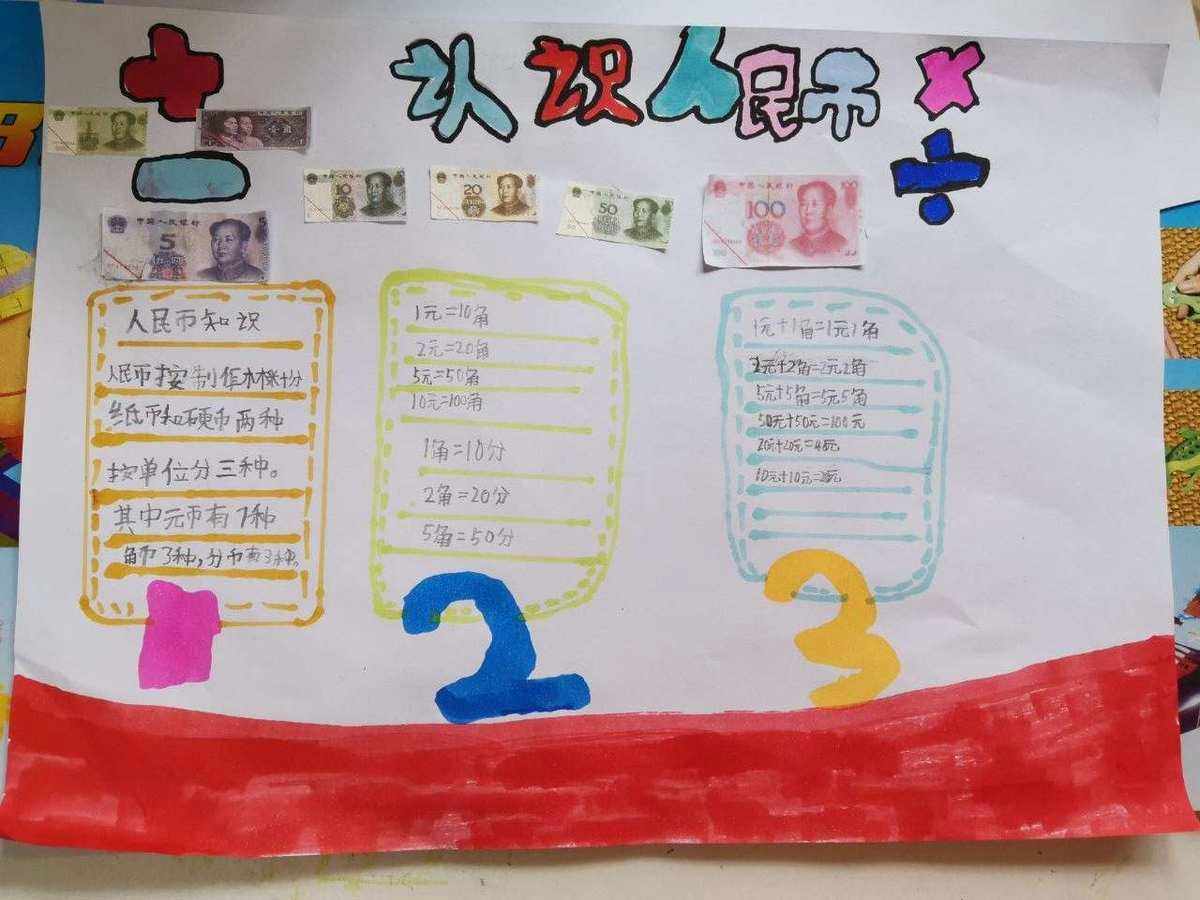 认识人民币
壹角
中国人民银行
10
中国人民银行
20
中国人民银行
50
中国人民银行
100
100
中国人民银行
5
5
人民币知识
人民币按制作材料分
纸币和硬币两种
按单位分三种。
其中元币有7种
角币3种,分币有3种。
1元=10角
2元=20角
5元=50角
10元=100角
1角=10分
2角=20分
5角=50分
1元+1角=1元1角
2元+2角=2元2角
5元+5角=5元5角
50元+50元=100元
20元+20元=40元
10元+10元=20元
1
2
3